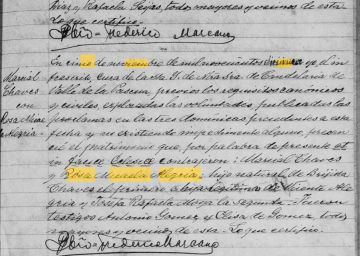 Díaz y Rafaela Rojas, todos mayores y vecinos de esta
Lo que certifico.
Pbro. Federico Marcano
En cinco de noviembre de mil novecientos yo, el in-
frascrito, Cura de la Sta. I. de Ntra. Sra. de Candelaria de
Valle de la Pascua, previos los requisitos canónicos
y civiles, exploradas las voluntades, publicadas las
proclamas en las tres domínicas precedentes a esta
fecha y no existiendo impedimento alguno, presen-
cié el matrimonio que, por palabra de presente et
in facie Eclesiæ contrajeron: Marcial Chaves
y Rosa Alegría, hijo natural de Brígida
Chaves el primero e hija legítima de Vicente Ale-
gría y Josefa Rafaela Moya la segunda. Fueron
testigos Antonio Gomez y Elisa de Gomez, todos
mayores y vecinos de esta. Lo que certifico.
Pbro. Federico Marcano
Marcial
Chaves
con
Rosa
Alegría.